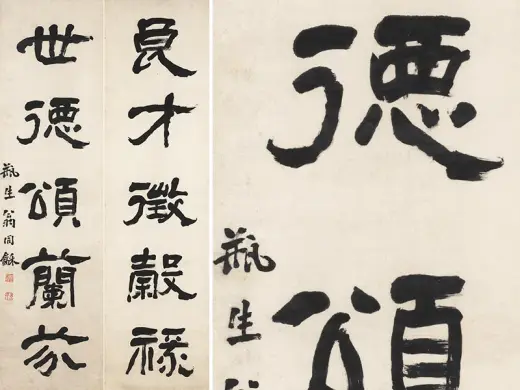 良才徵穀祿
世德頌蘭芬
瓶生翁同龢
德頌
瓶生